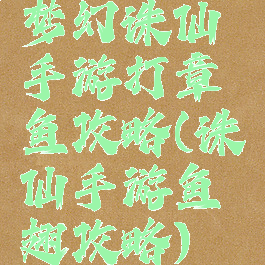 梦幻诛仙
手游打章
鱼攻略(诛
仙手游鱼
翅攻略)